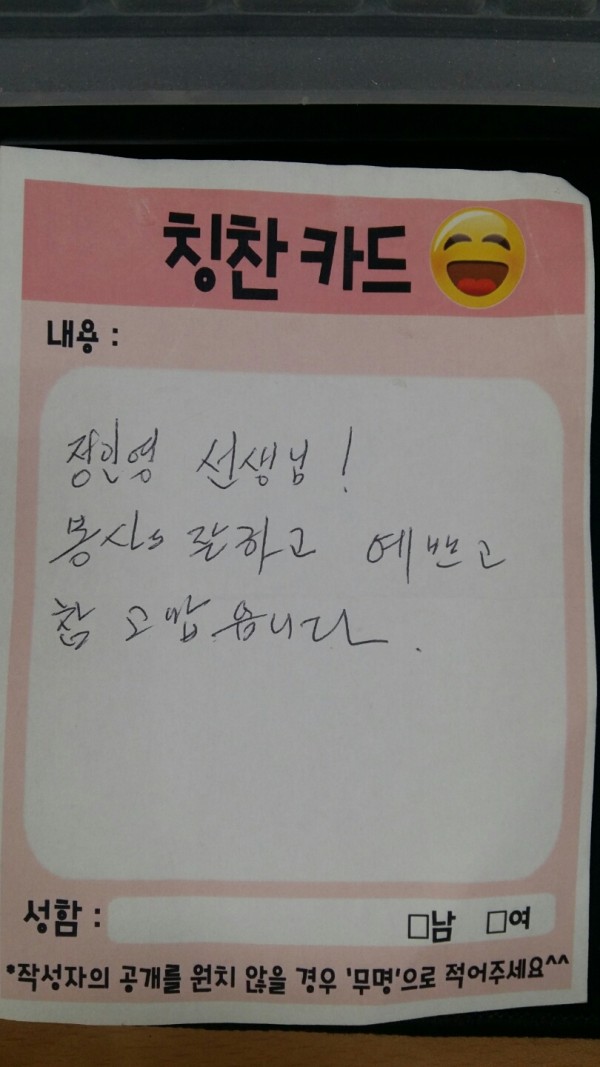 칭찬 카드
내용 :
장인영 선생님!
봉사 잘하고 예쁘고
참 고맙습니다.
성함 :
□남 □여
*작성자의 공개를 원치 않을 경우 '무명'으로 적어주세요^^